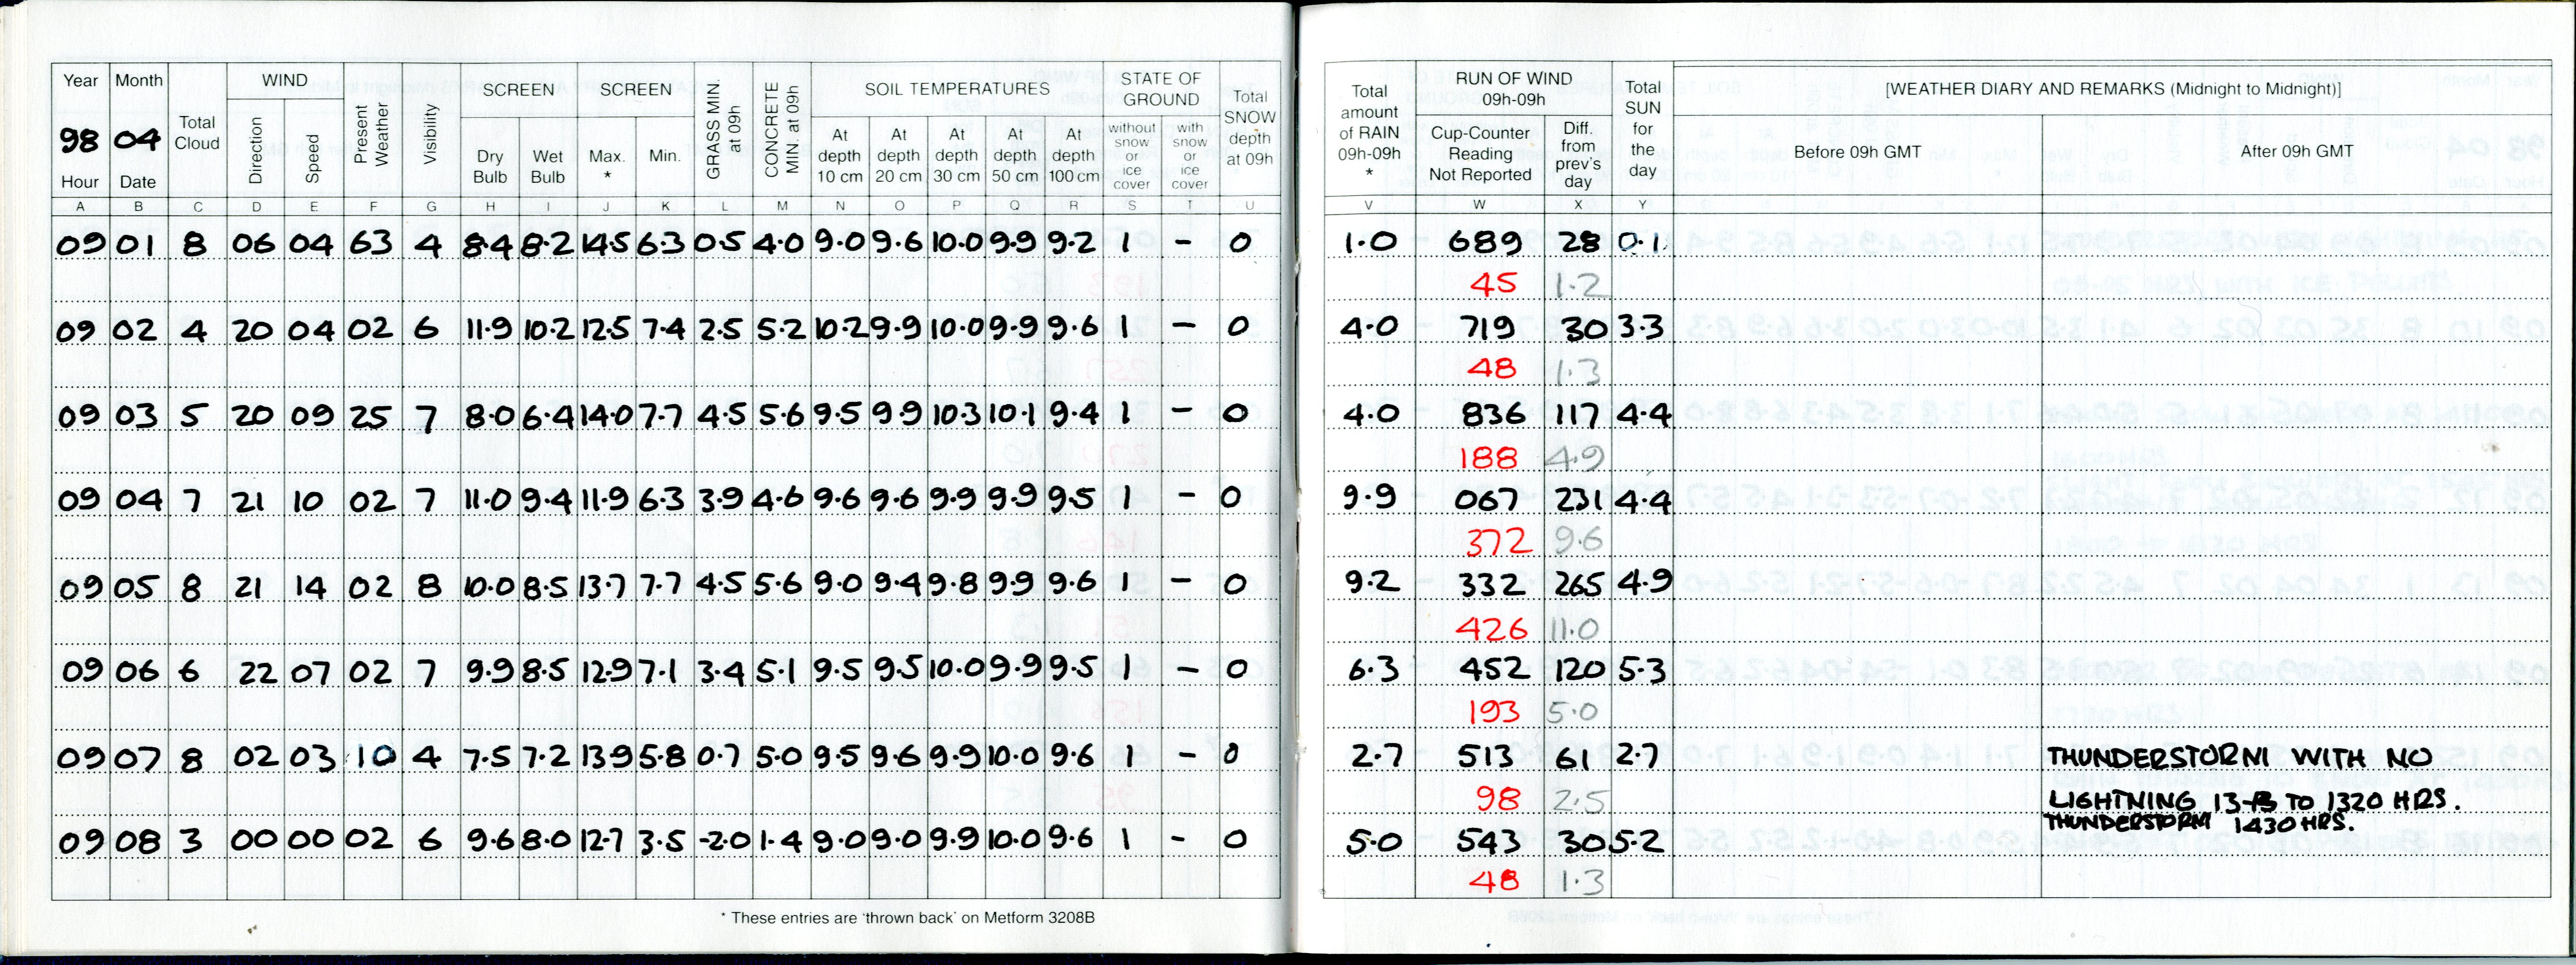 Year Month WIND SCREEN SCREEN SOIL TEMPERATURES STATE OF GROUND
98 04 Total Cloud Direction Speed Present Weather Visibility Dry Bulb Wet Bulb Max. * Min. GRASS MIN. at 09h CONCRETE MIN. at 09h At depth 10 cm At depth 20 cm At depth 30 cm At depth 50 cm At depth 100 cm without snow or ice cover with snow or ice cover Total SNOW depth at 09h
Hour Date
A B C D E F G H I J K L M N O P Q R S T U
09 01 8 06 04 63 4 8.4 8.2 14.5 6.3 0.5 4.0 9.0 9.6 10.0 9.9 9.2 1 - 0
09 02 4 20 04 02 6 11.9 10.2 12.5 7.4 2.5 5.2 10.2 9.9 10.0 9.9 9.6 1 - 0
09 03 5 20 09 25 7 8.0 6.4 14.0 7.7 4.5 5.6 9.5 9.9 10.3 10.1 9.4 1 - 0
09 04 7 21 10 02 7 11.0 9.4 11.9 6.3 3.9 4.6 9.6 9.6 9.9 9.9 9.5 1 - 0
09 05 8 21 14 02 8 10.0 8.5 13.7 7.7 4.5 5.6 9.0 9.4 9.8 9.9 9.6 1 - 0
09 06 6 22 07 02 7 9.9 8.5 12.9 7.1 3.4 5.1 9.5 9.5 10.0 9.9 9.5 1 - 0
09 07 8 02 03 10 4 7.5 7.2 13.9 5.8 0.7 5.0 9.5 9.6 9.9 10.0 9.6 1 - 0
09 08 3 00 00 02 6 9.6 8.0 12.7 3.5 -2.0 1.4 9.0 9.0 9.9 10.0 9.6 1 - 0
* These entries are 'thrown back' on Metform 3208B
Total amount of RAIN 09h-09h * RUN OF WIND 09h-09h Total SUN for the day [WEATHER DIARY AND REMARKS (Midnight to Midnight)]
Cup-Counter Reading Not Reported Diff. from prev's day Before 09h GMT After 09h GMT
V W X Y
1.0 689 28 0.1
45 1.2
4.0 719 30 3.3
48 1.3
4.0 836 117 4.4
188 4.9
9.9 067 231 4.4
372 9.6
9.2 332 265 4.9
426 11.0
6.3 452 120 5.3
193 5.0
2.7 513 61 2.7 THUNDERSTORM WITH NO
98 2.5 LIGHTNING TO 1320 HRS.
THUNDERSTORM 1430 HRS.
5.0 543 30 5.2
48 1.3